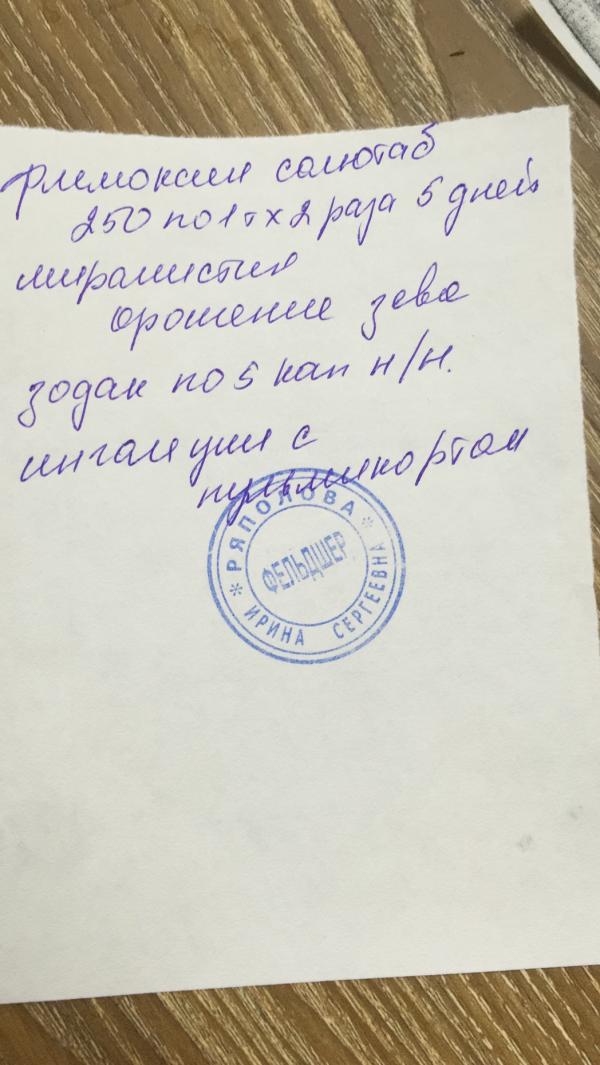 Флемоксин солютаб
250 по 1т х 2 раза 5 дней
мирамистин
орошение зева
зодак по 5 кап н/н.
ингаляции с
пульмикортом
* РЯПОЛОВА *
ФЕЛЬДШЕР
ИРИНА СЕРГЕЕВНА